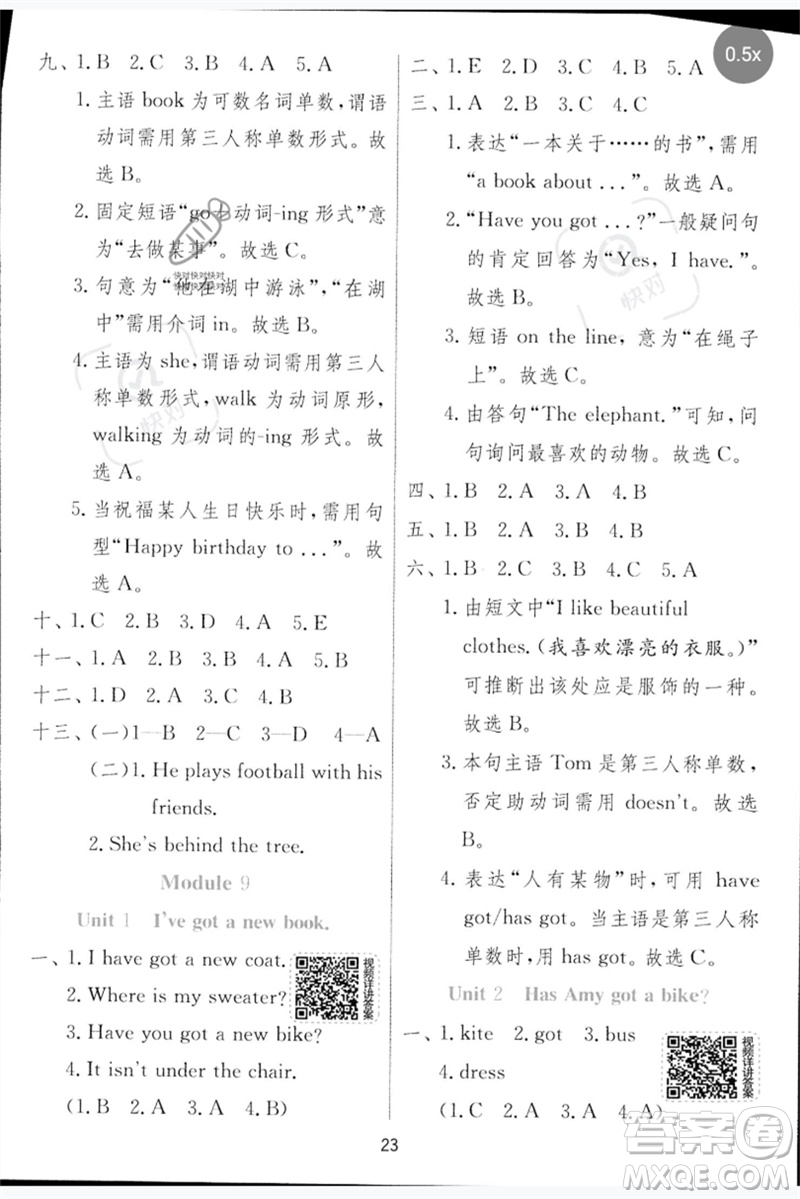 九、1. B 2. C 3. B 4. A 5. A
1. 主语 book 为可数名词单数，谓语
动词需用第三人称单数形式。故
选 B。
2. 固定短语“go+动词-ing 形式”意
为“去做某事”。故选 C。
3. 句意为“他在湖中游泳”，“在湖
中”需用介词 in。故选 B。
4. 主语为 she，谓语动词需用第三人
称单数形式，walk 为动词原形，
walking 为动词的-ing 形式。故
选 A。
5. 当祝福某人生日快乐时，需用句
型“Happy birthday to ...”。故
选 A。
十、1. C 2. B 3. D 4. A 5. E
十一、1. A 2. B 3. B 4. A 5. B
十二、1. D 2. A 3. B 4. C
十三、(一)1—B 2—C 3—D 4—A
(二)1. He plays football with his
friends.
2. She's behind the tree.
Module 9
Unit 1 I've got a new book.
一、1. I have got a new coat.
2. Where is my sweater?
3. Have you got a new bike?
4. It isn't under the chair.
(1. B 2. A 3. A 4. B)
视频详讲答案
二、1. E 2. D 3. B 4. C 5. A
三、1. A 2. B 3. C 4. C
1. 表达“一本关于……的书”，需用
“a book about ...”。故选 A。
2. “Have you got ...?”一般疑问句
的肯定回答为“Yes, I have.”。
故选 B。
3. 短语 on the line，意为“在绳子
上”。故选 C。
4. 由答句“The elephant.”可知，问
句询问最喜欢的动物。故选 C。
四、1. B 2. A 3. A 4. B
五、1. B 2. A 3. B 4. A
六、1. B 2. C 3. B 4. C 5. A
1. 由短文中“I like beautiful
clothes.(我喜欢漂亮的衣服。)”
可推断出该处应是服饰的一种。
故选 B。
3. 本句主语 Tom 是第三人称单数，
否定助动词需用 doesn't。故选
B。
4. 表达“人有某物”时，可用 have
got/has got。当主语是第三人称
单数时，用 has got。故选 C。
Unit 2 Has Amy got a bike?
一、1. kite 2. got 3. bus
4. dress
(1. C 2. A 3. A 4. A)
视频详讲答案
23
0.5x
快对快对快对
快对快对快对
快对
快对
答案卷
MXQE.COM